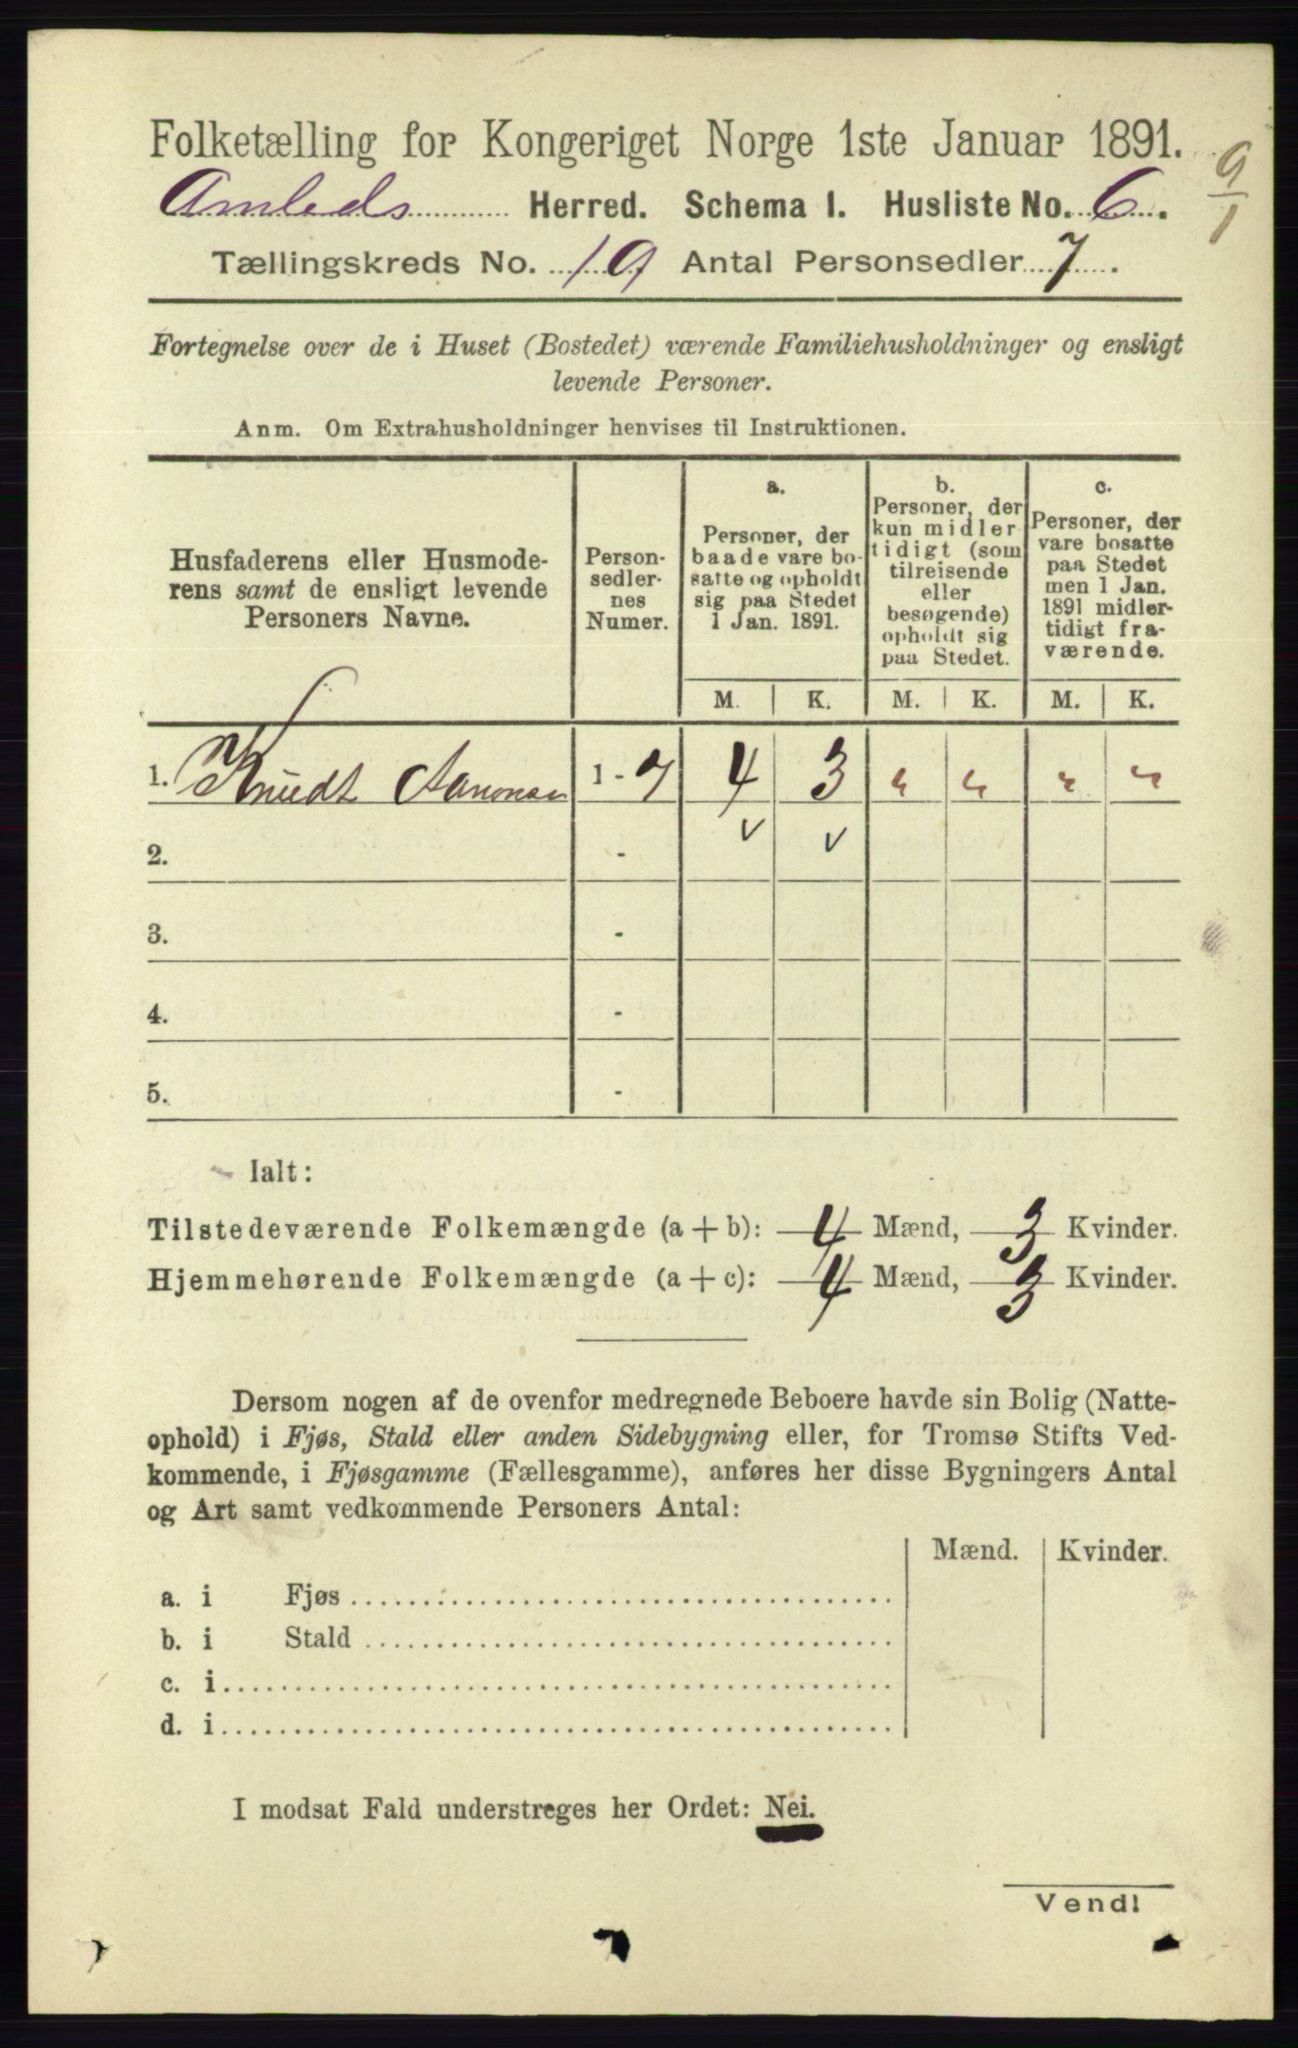 Folketælling for Kongeriget Norge 1ste Januar 1891.
9/1
Amleds Herred. Schema 1. Husliste No. 6.
Tællingskreds No. 19 Antal Personsedler 7.
Fortegnelse over de i Huset (Bostedet) værende Familiehusholdninger og ensligt
levende Personer.
Anm. Om Extrahusholdninger henvises til Instruktionen.
Husfaderens eller Husmode-
rens samt de ensligt levende
Personers Navne.
Person-
sedler-
nes
Numer.
a.
Personer, der
baade vare bo-
satte og opholdt
sig paa Stedet
1 Jan. 1891.
b.
Personer, der
kun midler-
tidigt (som
tilreisende
eller
besøgende)
opholdt sig
paa Stedet.
c.
Personer, der
vare bosatte
paa Stedet
men 1 Jan.
1891 midler-
tidigt fra-
værende.
M. K. M. K. M. K.
1. Knudt Aanonsen 1 - 7 4 3 " " " "
2. - v v
3. -
4. -
5. -
Ialt:
Tilstedeværende Folkemængde (a + b): 4 Mænd, 3 Kvinder.
Hjemmehørende Folkemængde (a + c): 4 Mænd, 3 Kvinder.
Dersom nogen af de ovenfor medregnede Beboere havde sin Bolig (Natte-
ophold) i Fjøs, Stald eller anden Sidebygning eller, for Tromsø Stifts Ved-
kommende, i Fjøsgamme (Fællesgamme), anføres her disse Bygningers Antal
og Art samt vedkommende Personers Antal:
Mænd. Kvinder.
a. i Fjøs
b. i Stald
c. i
d. i
I modsat Fald understreges her Ordet: Nei.
Vend!